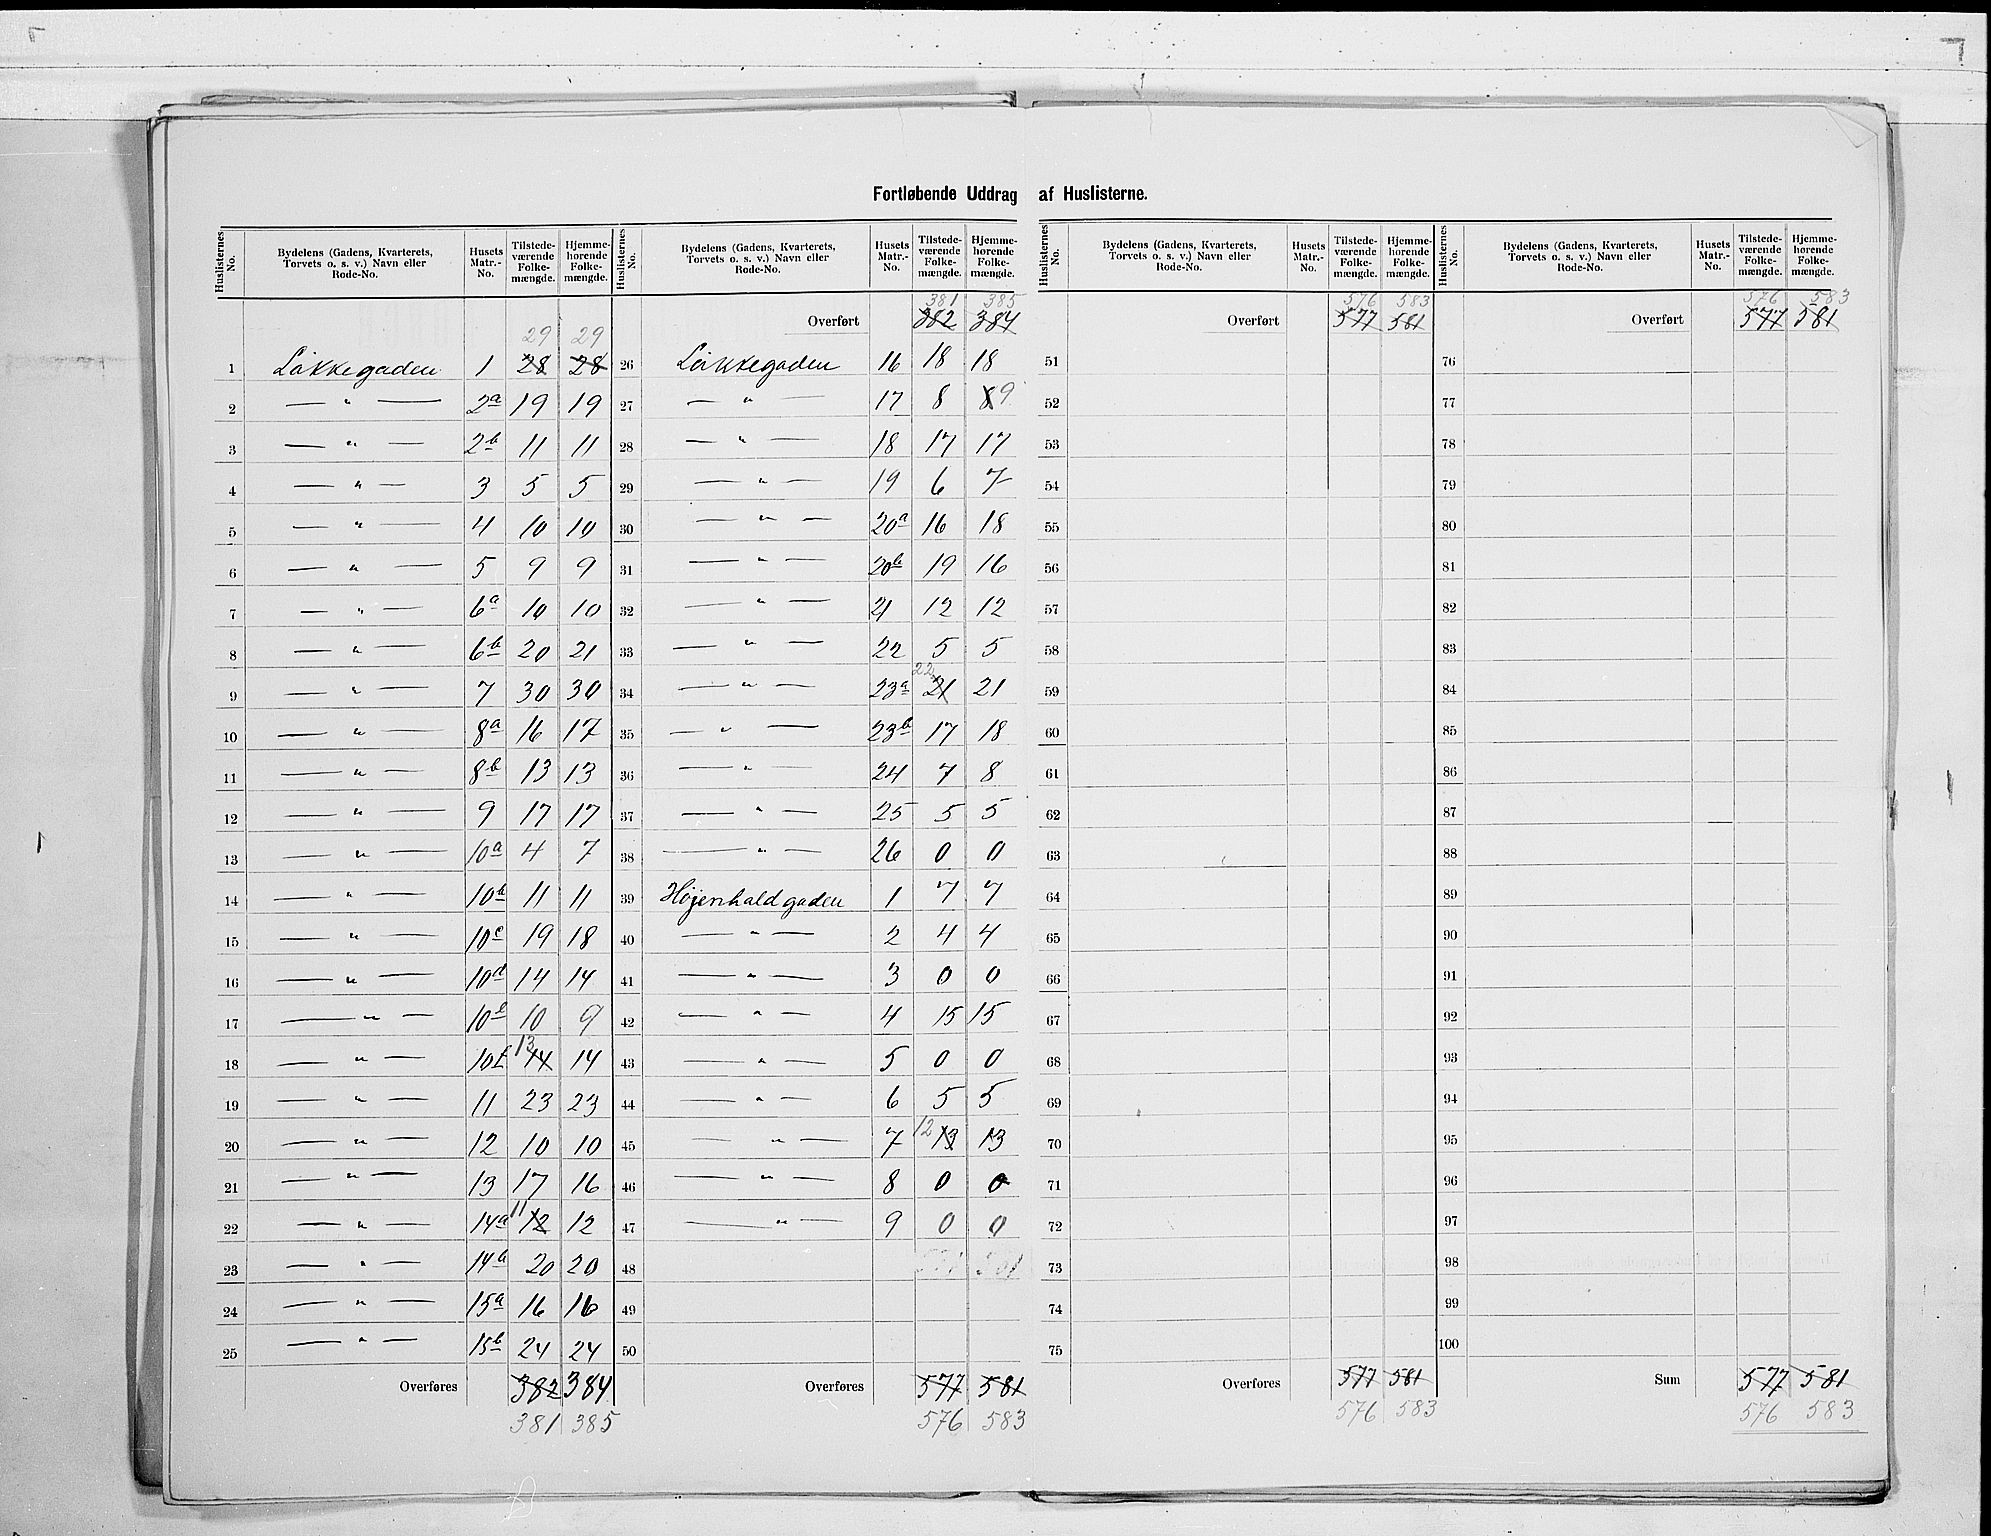 Fortløbende Uddrag af Huslisterne.
Huslisternes No. | Bydelens (Gadens, Kvarterets, Torvets o. s. v.) Navn eller Rode-No. | Husets Matr.-No. | Tilstedeværende Folkemængde. | Hjemmehørende Folkemængde.
29 29
1 Løkkegaden 1 28 28
2 — " — 2a 19 19
3 — " — 2b 11 11
4 — " — 3 5 5
5 — " — 4 10 10
6 — " — 5 9 9
7 — " — 6a 10 10
8 — " — 6b 20 21
9 — " — 7 30 30
10 — " — 8a 16 17
11 — " — 8b 13 13
12 — " — 9 17 17
13 — " — 10a 4 7
14 — " — 10b 11 11
15 — " — 10c 19 18
16 — " — 10d 14 14
17 — " — 10e 10 9
18 — " — 10f 13 14 14
19 — " — 11 23 23
20 — " — 12 10 10
21 — " — 13 17 16
22 — " — 14a 11 12 12
23 — " — 14b 20 20
24 — " — 15a 16 16
25 — " — 15b 24 24
Overføres 382 384
381 385
Huslisternes No. | Bydelens (Gadens, Kvarterets, Torvets o. s. v.) Navn eller Rode-No. | Husets Matr.-No. | Tilstedeværende Folkemængde. | Hjemmehørende Folkemængde.
381 385
Overført 382 384
26 Løkkegaden 16 18 18
27 — " — 17 8 8 9
28 — " — 18 17 17
29 — " — 19 6 7
30 — " — 20a 16 18
31 — " — 20b 19 16
32 — " — 21 12 12
33 — " — 22 5 5
34 — " — 23a 22 21 21
35 — " — 23b 17 18
36 — " — 24 7 8
37 — " — 25 5 5
38 — " — 26 0 0
39 Højenhaldgaden 1 7 7
40 — " — 2 4 4
41 — " — 3 0 0
42 — " — 4 15 15
43 — " — 5 0 0
44 — " — 6 5 5
45 — " — 7 12 13 13
46 — " — 8 0 0
47 — " — 9 0 0
48
49
50
Overføres 577 581
576 583
Huslisternes No. | Bydelens (Gadens, Kvarterets, Torvets o. s. v.) Navn eller Rode-No. | Husets Matr.-No. | Tilstedeværende Folkemængde. | Hjemmehørende Folkemængde.
576 583
Overført 577 581
51
52
53
54
55
56
57
58
59
60
61
62
63
64
65
66
67
68
69
70
71
72
73
74
75
Overføres 577 581
576 583
Huslisternes No. | Bydelens (Gadens, Kvarterets, Torvets o. s. v.) Navn eller Rode-No. | Husets Matr.-No. | Tilstedeværende Folkemængde. | Hjemmehørende Folkemængde.
576 583
Overført 577 581
76
77
78
79
80
81
82
83
84
85
86
87
88
89
90
91
92
93
94
95
96
97
98
99
100
Sum 577 581
576 583